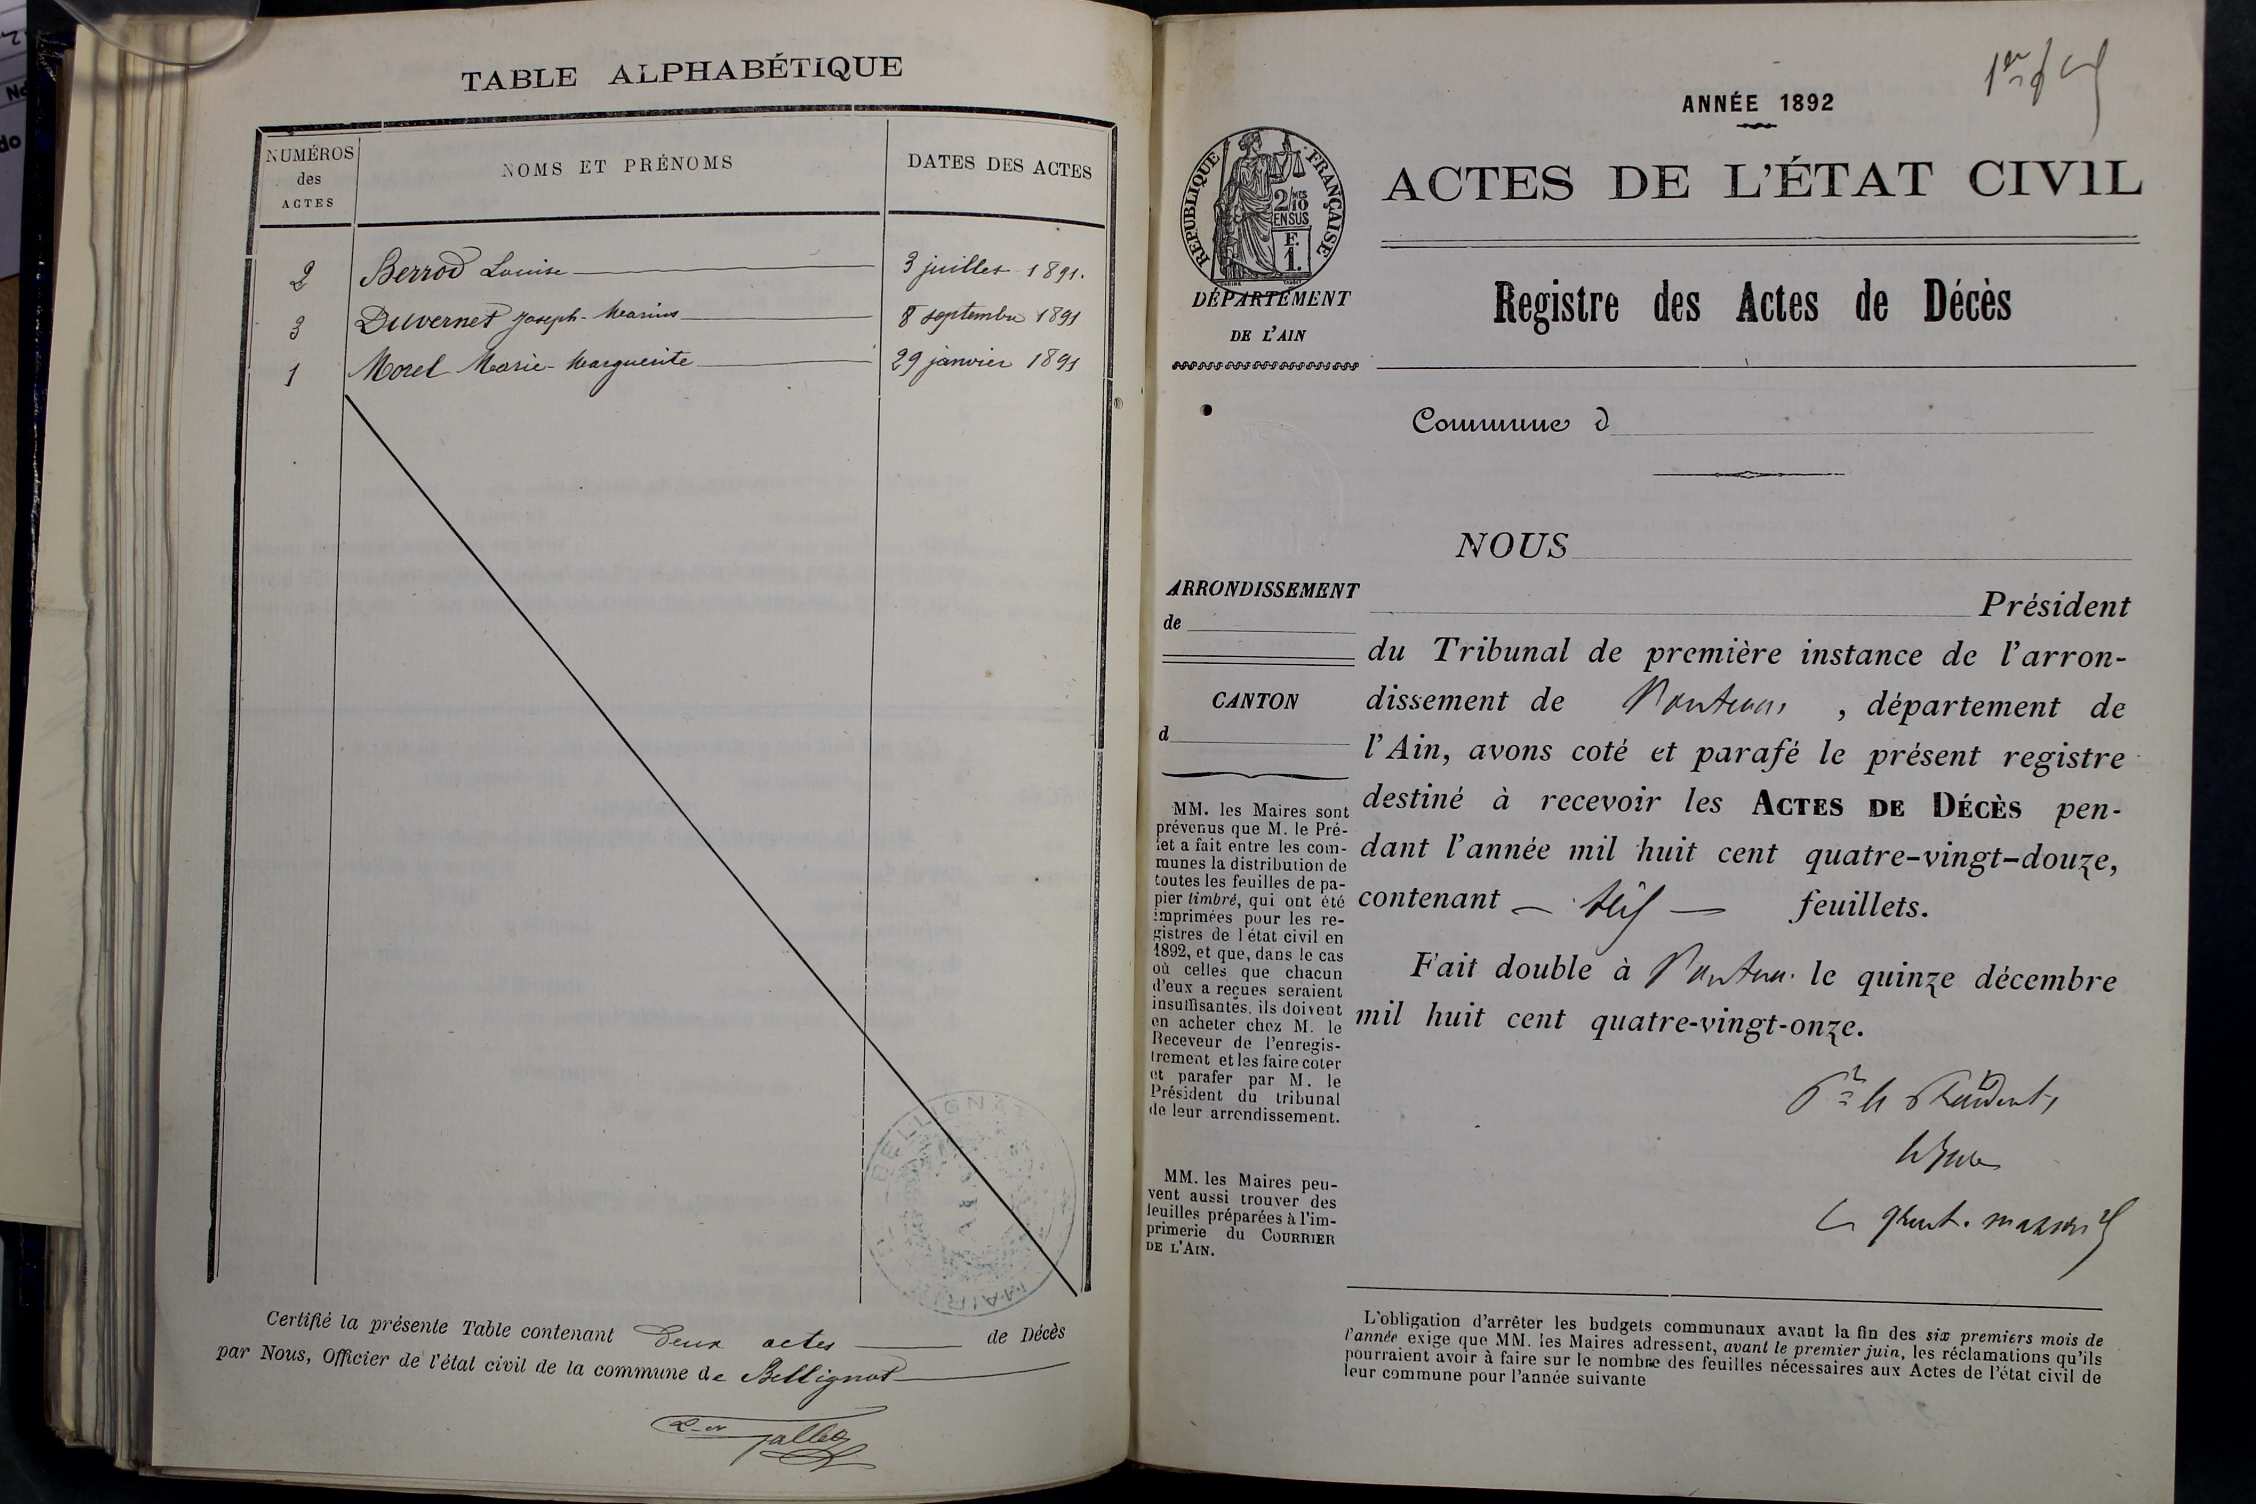 TABLE ALPHABÉTIQUE
NUMÉROS
des
ACTES
NOMS ET PRÉNOMS
DATES DES ACTES
2 Berrod Louise 3 juillet 1891.
3 Duvernet Joseph-Marius 8 septembre 1891
1 Morel Marie-Marguerite 29 janvier 1891
BELLIGNAT
MAIRIE
Certifié la présente Table contenant deux actes de Décès
par Nous, Officier de l'état civil de la commune de Bellignat
ANNÉE 1892
ACTES DE L'ÉTAT CIVIL
RÉPUBLIQUE FRANÇAISE
2/10 MES
EN SUS
F.
1.
DÉPARTEMENT
DE L'AIN
Registre des Actes de Décès
Commune d
NOUS
ARRONDISSEMENT
de
CANTON
d
Président
du Tribunal de première instance de l'arron-
dissement de Nantua, département de
l'Ain, avons coté et parafé le présent registre
destiné à recevoir les ACTES DE DÉCÈS pen-
dant l'année mil huit cent quatre-vingt-douze,
contenant feuillets.
Fait double à Nantua le quinze décembre
mil huit cent quatre-vingt-onze.
Pr le Président,
le Juge
MM. les Maires sont
prévenus que M. le Pré-
fet a fait entre les com-
munes la distribution de
toutes les feuilles de pa-
pier timbré, qui ont été
imprimées pour les re-
gistres de l'état civil en
1892, et que, dans le cas
où celles que chacun
d'eux a reçues seraient
insuffisantes, ils doivent
en acheter chez M. le
Receveur de l'enregis-
trement et les faire coter
et parafer par M. le
Président du tribunal
de leur arrondissement.
MM. les Maires peu-
vent aussi trouver des
feuilles préparées à l'im-
primerie du COURRIER
DE L'AIN.
L'obligation d'arrêter les budgets communaux avant la fin des six premiers mois de
l'année exige que MM. les Maires adressent, avant le premier juin, les réclamations qu'ils
pourraient avoir à faire sur le nombre des feuilles nécessaires aux Actes de l'état civil de
leur commune pour l'année suivante